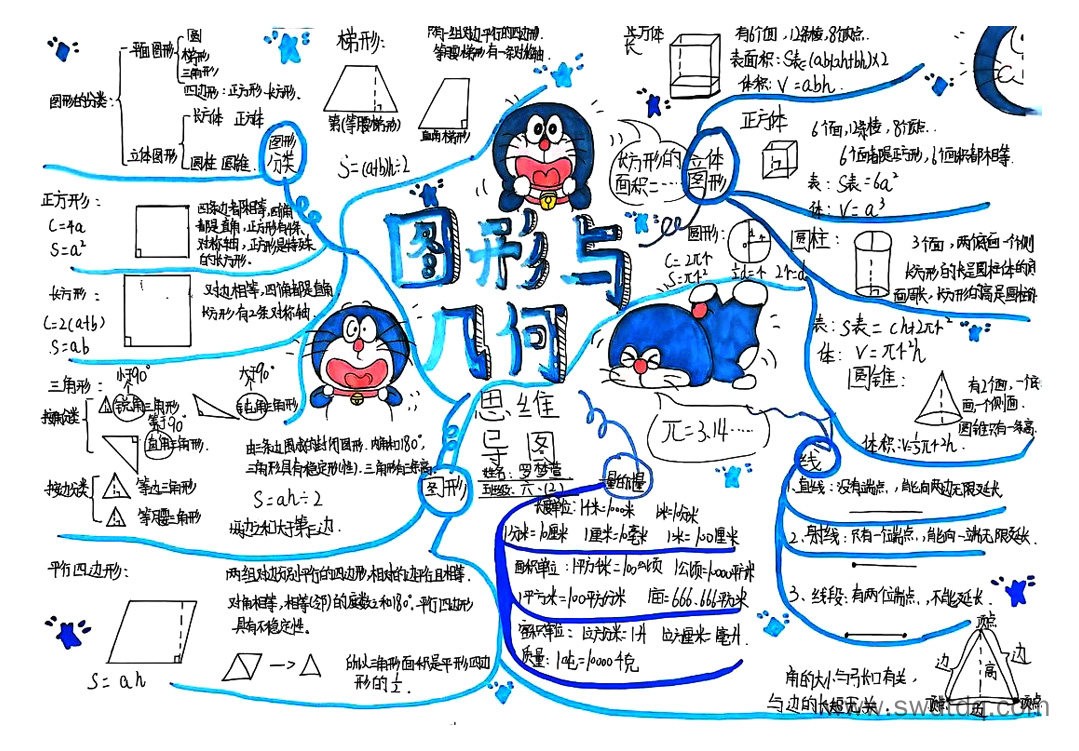 图形与
几何
思维
导图
姓名: 罗梦萱
班级: 六·(2)
图形的分类:
平面图形
圆
梯形
三角形
四边形: 正方形·长方形.
立体图形
长方体 正方体
圆柱 圆锥.
图形
分类
梯形:
所有一组对边平行的四边形.
等腰梯形有一条对称轴
(等腰梯形)
直角梯形)
S=(a+b)h÷2
长方体
有6个面,12条棱,8个顶点.
表面积: S表=(ab+ah+bh)×2
体积: V=abh.
正方体
6个面,12条棱,8个顶点..
6个面都是正方形,6个面积都相等.
表: S表=6a²
体: V=a³
长方形的
面积=……
立体
图形
正方形:
C=4a
S=a²
四条边都相等,四角
都是直角,正方形有4条
对称轴,正方形是特殊
的长方形.
长方形:
C=2(a+b)
S=ab
对边相等,四个角都是直角
长方形有2条对称轴.
圆形:
C=2πr
S=πr²
圆柱:
3个面,两个底面一个侧
表: S表=ch+2πr²
体: V=πr²h
圆锥:
有2个面,一个底
面,一个侧面.
圆锥只有一条高.
体积:V=⅓πr²h.
π=3.14……
三角形:
小于90°
大于90°
按角分类
锐角三角形
钝角三角形
等于90°
直角三角形.
按边分类
等边三角形
等腰三角形
由三条边围成的封闭图形.内角和180°,
三角形具有稳定形(性).三角形有三条高.
S=ah÷2
两边之和大于第三边.
图形
平行四边形:
两组对边分别平行的四边形,相对的边平行且相等.
对角相等,相等(邻)的度数之和180°.平行四边形
具有不稳定性。
S=ah
所以三角形面积是平形四边
形的½.
长度单位: 1千米=1000米 1米=10分米
1分米=10厘米 1厘米=10毫米 1米=100厘米
面积单位: 1平方千米=100公顷 1公顷=10000平方米
1平方米=100平方分米 1亩=666.666平方米
容积单位: 1立方分米=1升 1立方厘米=1毫升.
线
1、直线: 没有端点,,能向两边无限延长
2、射线: 只有一个端点,,能向一端无限延长.
3、线段: 有两个端点,,不能延长.
角的大小与开口有关,
与边的长短无关.
顶点
边
边
高
顶点
边
顶点
www.swdtdq.com